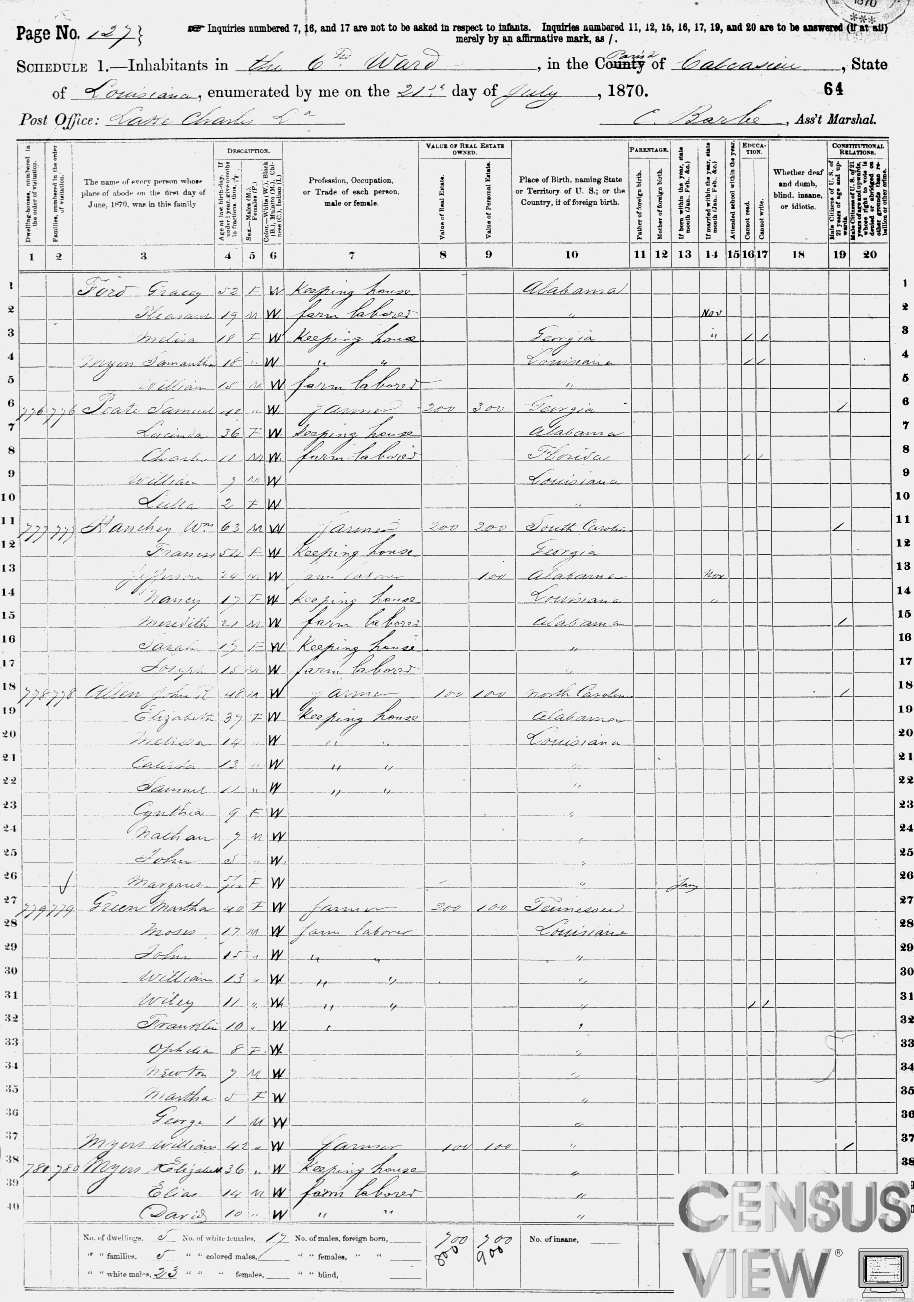 1870
Page No. 127 } ☞ Inquiries numbered 7, 16, and 17 are not to be asked in respect to infants. Inquiries numbered 11, 12, 15, 16, 17, 19, and 20 are to be answered (if at all)
merely by an affirmative mark, as /.
SCHEDULE 1.—Inhabitants in the 6th Ward, in the County Parish of Calcasieu, State
of Louisiana, enumerated by me on the 21st day of July, 1870. 64
Post Office: Lake Charles La C Barbe, Ass't Marshal.
DESCRIPTION. VALUE OF REAL ESTATE OWNED. PARENTAGE. EDUCATION. CONSTITUTIONAL RELATIONS.
Dwelling-houses, numbered in the order of visitation.
Families, numbered in the order of visitation.
The name of every person whose place of abode on the first day of June, 1870, was in this family
Sex.—Males (M.), Females (F.)
Profession, Occupation, or Trade of each person, male or female.
Value of Real Estate.
Value of Personal Estate.
Place of Birth, naming State or Territory of U. S.; or the Country, if of foreign birth.
Father of foreign birth.
Mother of foreign birth.
If born within the year, state month (Jan., Feb., &c.)
If married within the year, state month (Jan., Feb., &c.)
Attended school within the year.
Cannot read.
Cannot write.
Whether deaf and dumb, blind, insane, or idiotic.
1 2 3 4 5 6 7 8 9 10 11 12 13 14 15 16 17 18 19 20
1 Ford Gracey 52 F W Keeping house Alabama 1
2 Pleasant 19 M W farm laborer " Nov 2
3 Melisa 18 F W Keeping house Georgia " / / 3
4 Myers Samantha 18 " W " " Louisiana / / 4
5 William 15 M W farm laborer " 5
6 776 776 Samuel 40 " W farmer 200 300 Georgia / 6
7 Lucinda 36 F W Keeping house Alabama 7
8 Charles 11 M W farm laborer Florida / / 8
9 William 7 M W Louisiana 9
10 2 F W " 10
11 777 777 Hanchey Wm 63 M W farmer 200 200 South Carolina / 11
12 Frances 54 F W Keeping house Georgia 12
13 Jefferson 24 M W farm laborer 100 Alabama Nov 13
14 Nancy 17 F W Keeping house Louisiana " 14
15 Meredith 21 M W farm laborer Alabama / 15
16 Sarah 17 F W Keeping house " 16
17 Joseph 15 M W farm laborer " 17
18 778 778 John R 48 M W farmer 100 100 North Carolina / 18
19 Elizabeth 37 F W Keeping house Alabama 19
20 Melissa 14 " W " " Louisiana 20
21 13 " W " " " 21
22 Samuel 11 " W " " " 22
23 Cynthia 9 F W " 23
24 Nathan 7 M W " 24
25 John 5 " W " 25
26 Margaret F W " Jany 26
27 779 779 Green Martha 40 F W farmer 300 100 Tennessee 27
28 Moses 17 M W farm laborer Louisiana 28
29 John 15 " W " " " 29
30 William 13 " W " " " 30
31 Wiley 11 " W " " " / / 31
32 Franklin 10 " W " " 32
33 Ophelia 8 F W " 33
34 Newton 7 M W " 34
35 Martha 5 F W " 35
36 George 1 M W " 36
37 Myers William 42 " W farmer 100 100 " / 37
38 780 780 Myers Elizabeth 36 " W Keeping house " 38
39 Elias 14 M W farm laborer "
40 David 10 " W " " "
No. of dwellings, 5 No. of white females, 17 No. of males, foreign born, 700 700 No. of insane,
" " families, 5 " " colored males, " " females, " " 800 900
" " white males, 23 " " " females, " " blind,
CENSUS
VIEW®